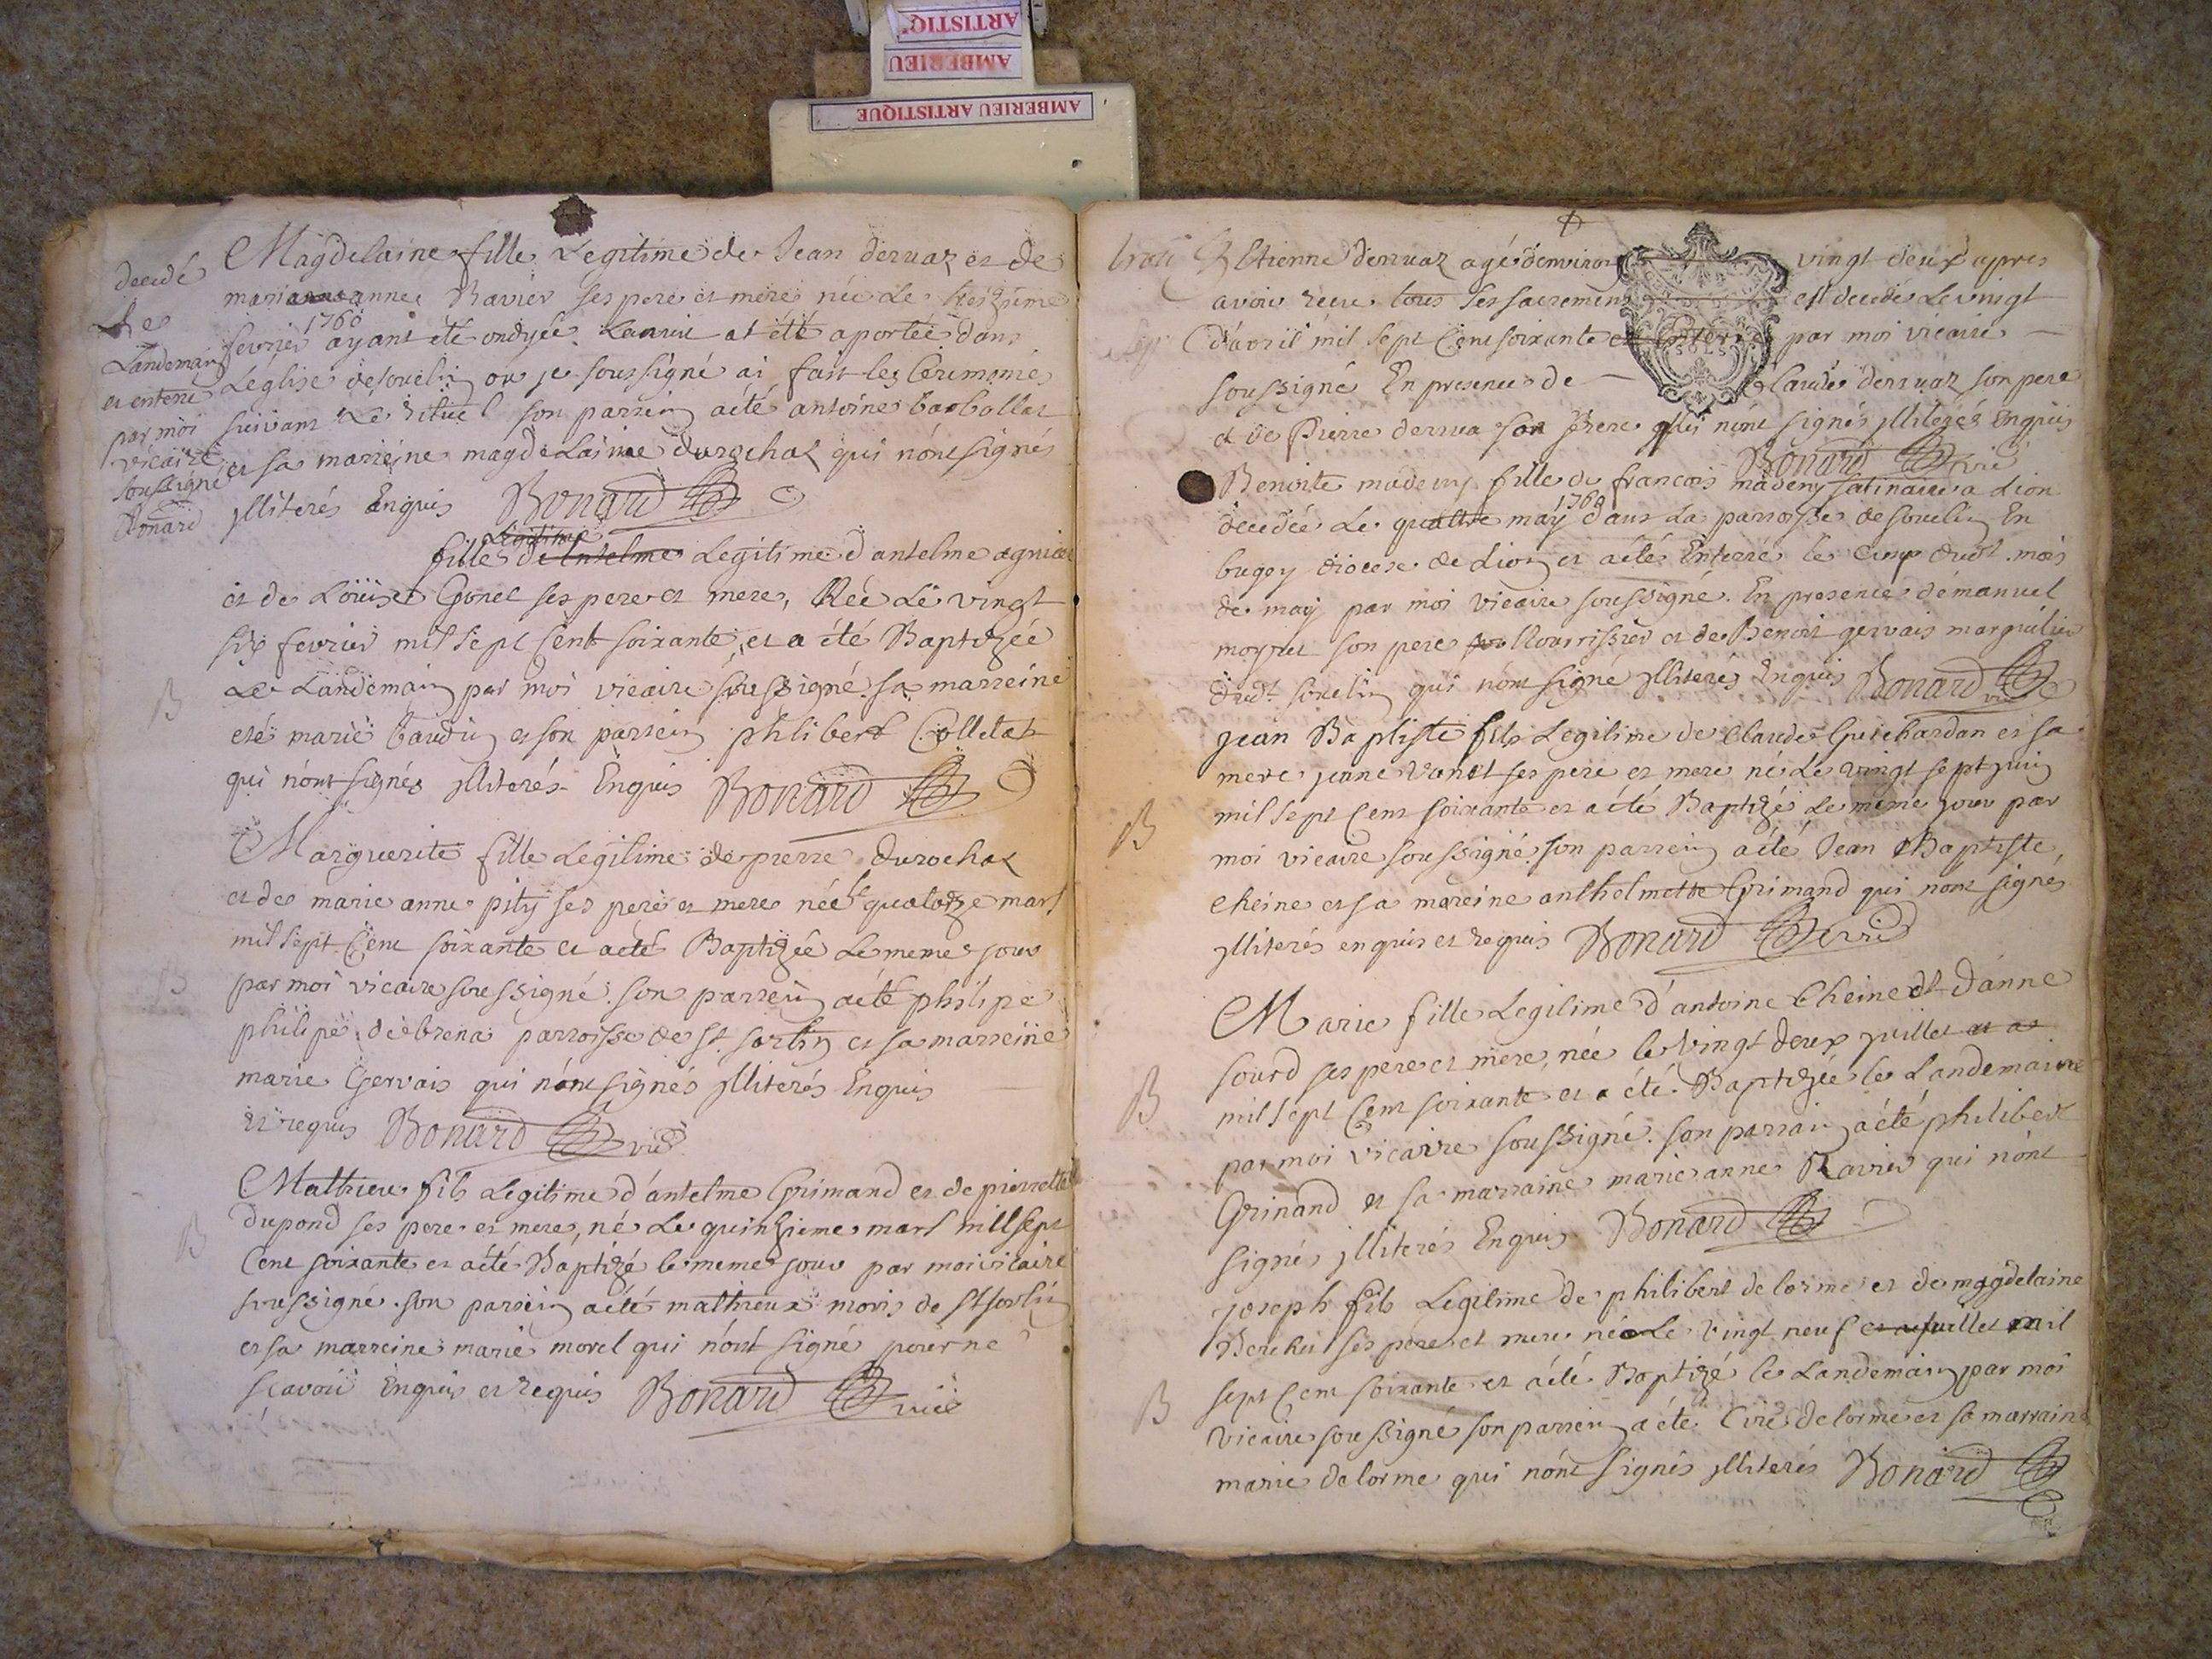 ARTISTIQ
AMBERIEU
AMBERIEU ARTISTIQUE
decedé
Le
Landemain
et enterré
par moi
vicaire
soussigné
Bonard
Magdelaine fille Legitime de Jean derruaz et de
marianne Ravier ses pere et mere née Le treizieme
fevrier 1760 ayant été ondyée at été aportée dans
Léglise de souclin ou je soussigné ai fait les Ceremonies
suivant Le rituel son parrein aété antoine barbollat
et sa marreine magdelaine durochat qui nónt signés
jlliterés Enquis Bonard
Legitime
fille de Antelme Legitime d antelme agnier
et de Loüise Gonet ses pere et mere, Née Le vingt
six fevrier mil sept Cent soixante, et a été Baptizée
Le Landemain par moi vicaire soussigné sa marreine
eté marie baudin et son parrein philibert Colletat
qui nónt signés jlliterés Enquis Bonard
B
Marguerite fille Legitime de pierre durochat
et de marie anne pity ses pere et mere née le quatorze mars
mil sept Cent soixante et aeté Baptizée Le meme jour
par moi vicaire soussigné. son parrein aété philipe
philipe debrena parroisse de st sorlin et sa marreine
marie Gervais qui nónt signés jlliterés Enquis
et requis Bonard vic
B
Mathieu fils Legitime d'antelme Grimand et de pierrette
dupond ses pere et mere, né Le quinzieme mars mill sept
Cent soixante et aété Baptizé le meme jour par moi vicaire
soussigné. son parrein aété mathieux moris de st sorlin
et sa marreine marie morel qui nónt signé pour ne
sçavoir Enquis et requis Bonard vic
B
Etienne derruaz agé d'environ vingt deux apres
avoir recu tous ses sacremens est decedé Le vingt
d'avril mil sept Cent soixante et Enterré par moi vicaire
soussigné En presence de Claude derruaz son pere
et de Pierre derrua son frere qui nónt signés jlliterés Enquis
SOLS
Bonard vic
Benoite madeny fille de francois madeny satinaire a Lion
decedée Le quattre may 1760 dans La parroisse de souclin En
bugey diocese de Lion et aété Enterré le Cinq dudt mois
de may par moi vicaire soussigné. En presence démanuel
moyret son pere Nourrissier et de Benoit gervais marguilier
dudt souclin qui nónt signé jlliterés Enquis Bonard vic
jean Baptiste fils Legitime de Claude Guichardan et sa
mere jeanne Vonet ses pere et mere né Le vingt sept juin
mil sept Cent soixante et aété Baptizé Le meme jour par
moi vicaire soussigné son parrein aété Jean Baptiste
cheine et sa mareine anthelmette Grimand qui nont signés
jlliterés enquis et requis Bonard vic
B
Marie fille Legitime d'antoine Cheine et d'anne
sourd ses pere et mere, née le vingt deux juillet et at
mil sept Cent soixante et a été Baptizée le Landemain
par moi vicaire soussigné. son parrain aété philibert
Grimand et sa marraine marie anne Ravier qui nónt
signés jlliterés Enquis Bonard
B
joseph fils Legitime de philibert delorme et de magdelaine
ses pere et mere né Le vingt neuf juillet mil
sept Cent soixante et aété Baptizé le Landemain par moi
vicaire soussigné son parrein a éte delorme et sa marraine
marie delorme qui nónt signés jlliterés Bonard
B